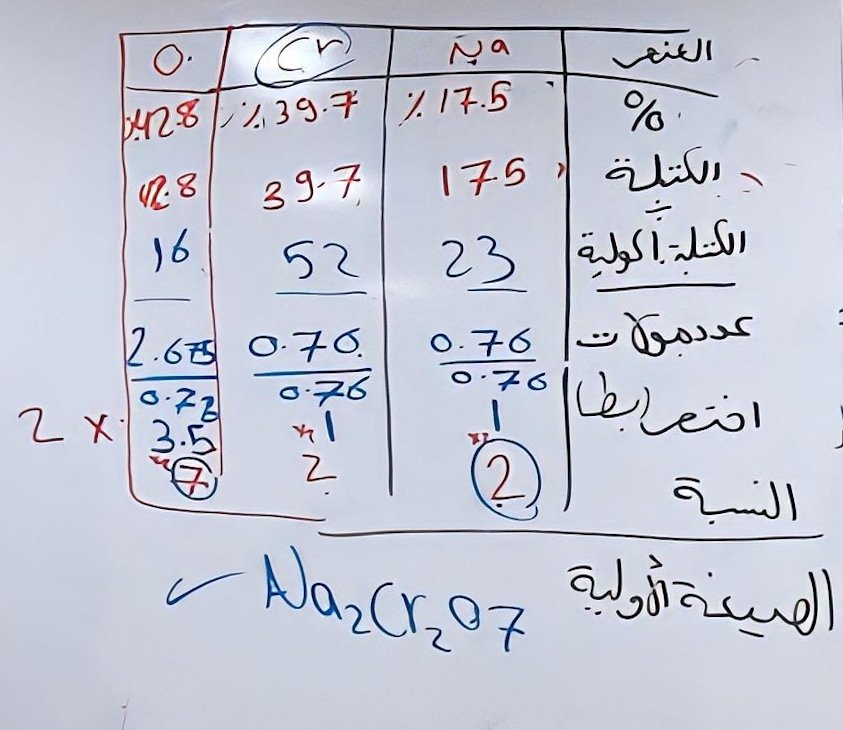 العنصر Na Cr O.
% ٪17.5 ٪39.7 ٪42.8
الكتلة 175 39.7 42.8
÷
الكتلة المولية 23 52 16
عدد مولات 0.76 0.76 2.675
0.76 0.76 0.76
اختصر ابطا 1 1 3.5 × 2
النسبة 2 2 7
الصيغة الأولية Na2Cr2O7 ✓